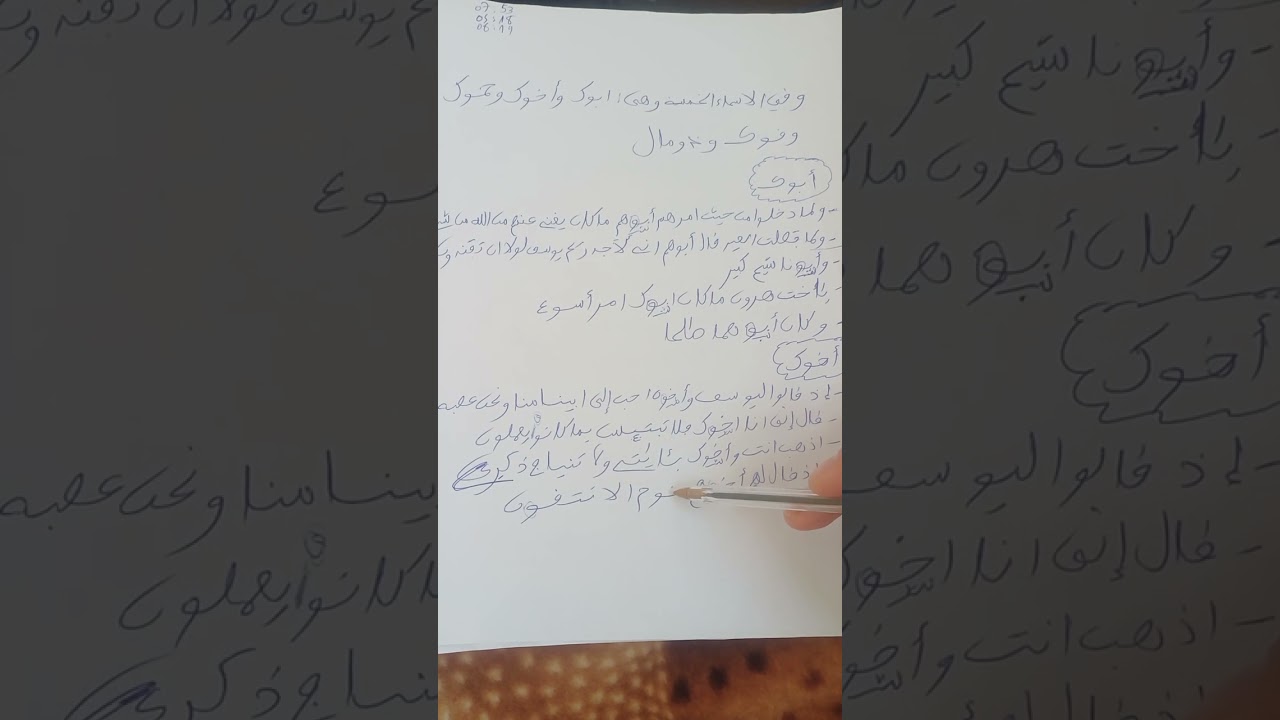 07:53
05:18
06:11
وفي الاسماء الخمسة وهي: ابوك وأخوك وحموك
وفوك وذو مال
أبوك
- ولما دخلوا من حيث امرهم أبوهم ما كان يغني عنهم من الله من
- ولما فصلت العير قال أبوهم اني لأجد ريح يوسف لولا ان تفند
- وأبونا شيخ كبير
- يا أخت هرون ما كان ابوك امرأ سوء
- وكان أبوهما صالحا
أخوك
- إذ قالوا ليوسف وأخوه احب إلى ابينا منا ونحن عصبة
- قال إني انا أخوك فلا تبتئس بما كانوا يعملون
- اذهب انت وأخوك بئايتي ولا تنيا في ذكري
اذ قال لهم نوح الا تتقون